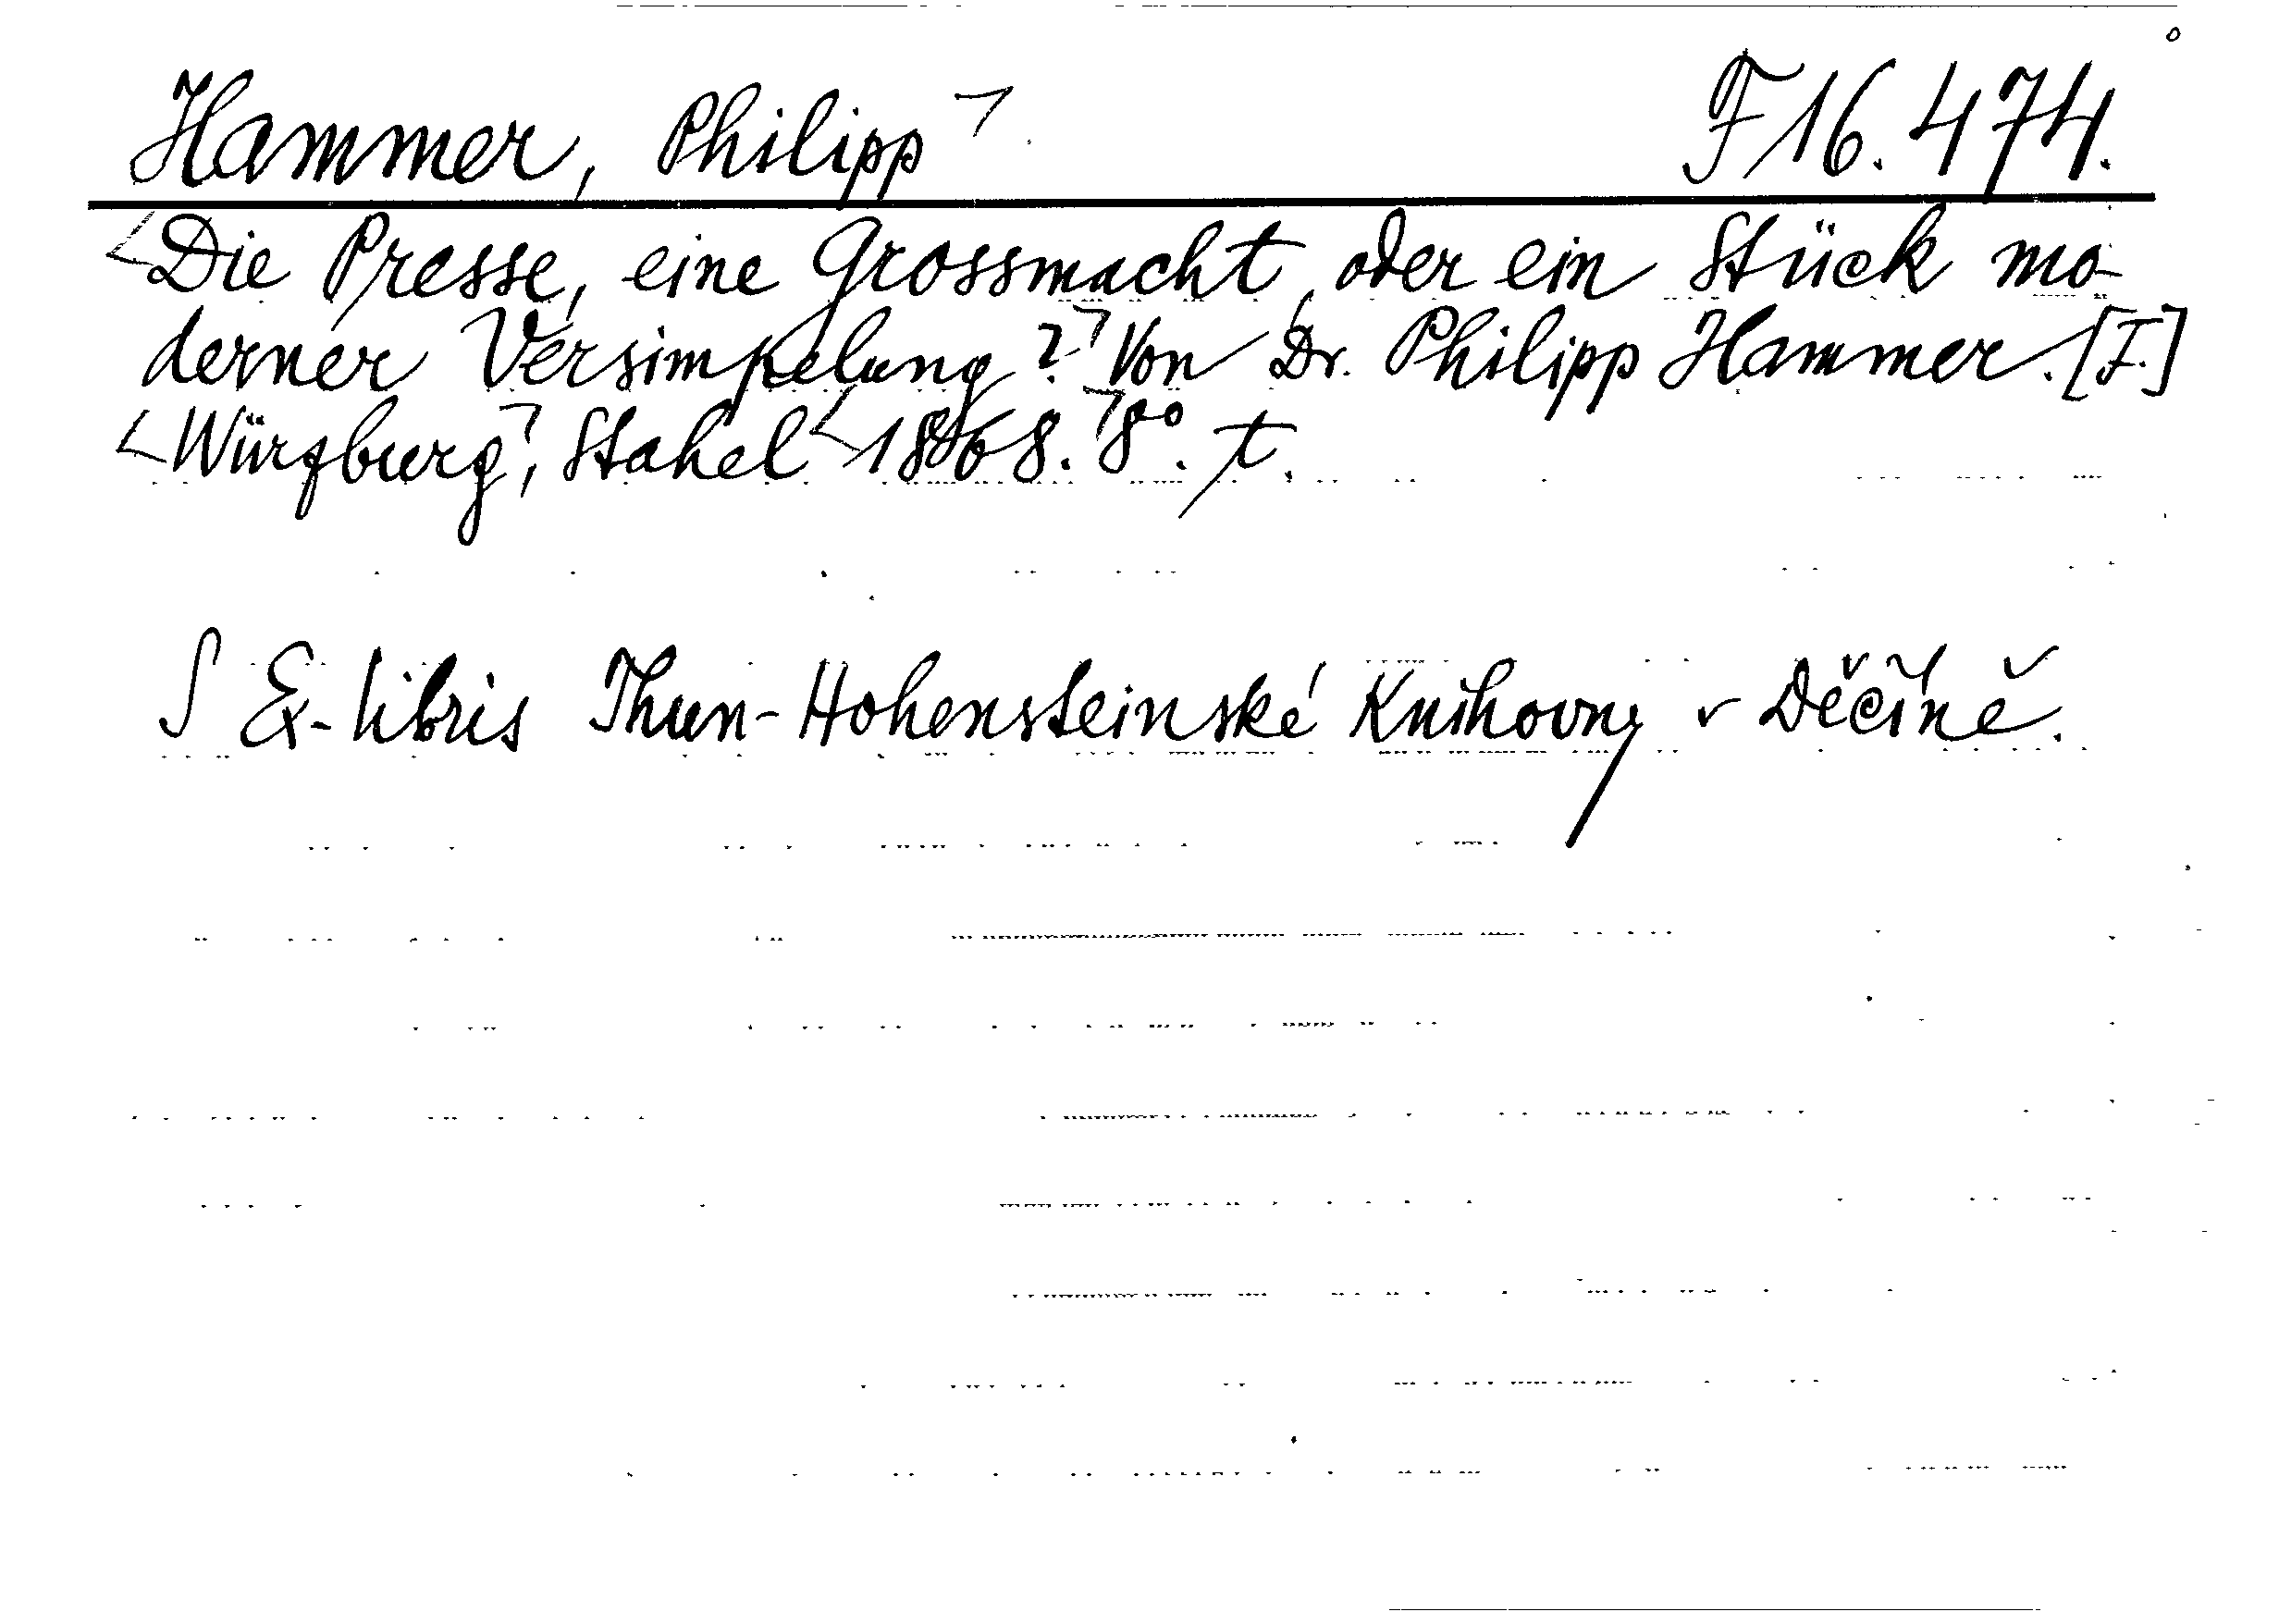 Hammer, Philipp F 16.474.
Die Presse, eine Grossmacht, oder ein Stück mo-
derner Versimpelung? Von Dr. Philipp Hammer. [I.]
Würzburg, Stahel 1868. 8°. t.
Ex-libris Thun-Hohensteinské Knihovny v Děčíně.